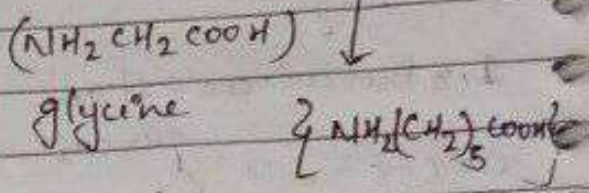 (NH₂ CH₂ COOH) ↓
glycine { NH₂(CH₂)₅ COOH}